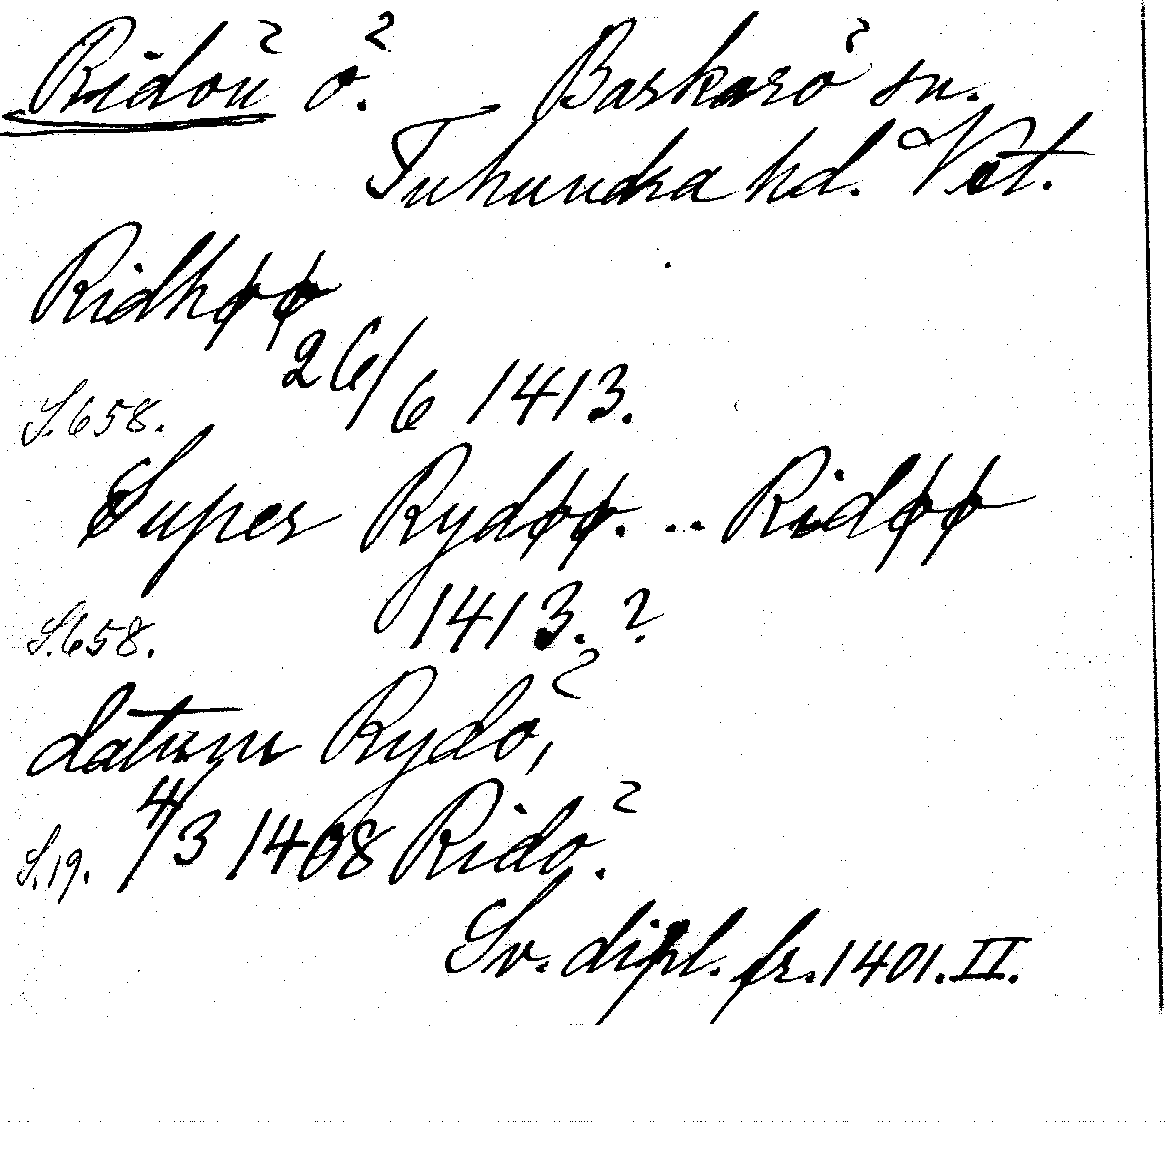 Ridöu ö. Baskarö sn.
Tuhundra hd. Vst.
Ridhøø
26/6 1413.
S. 658.
Super Rydøø. .. Ridøø
S. 658. 1413. ?
datum Rydö,
S. 19. 4/3 1408 Ridö.
Sv. dipl. fr. 1401. II.